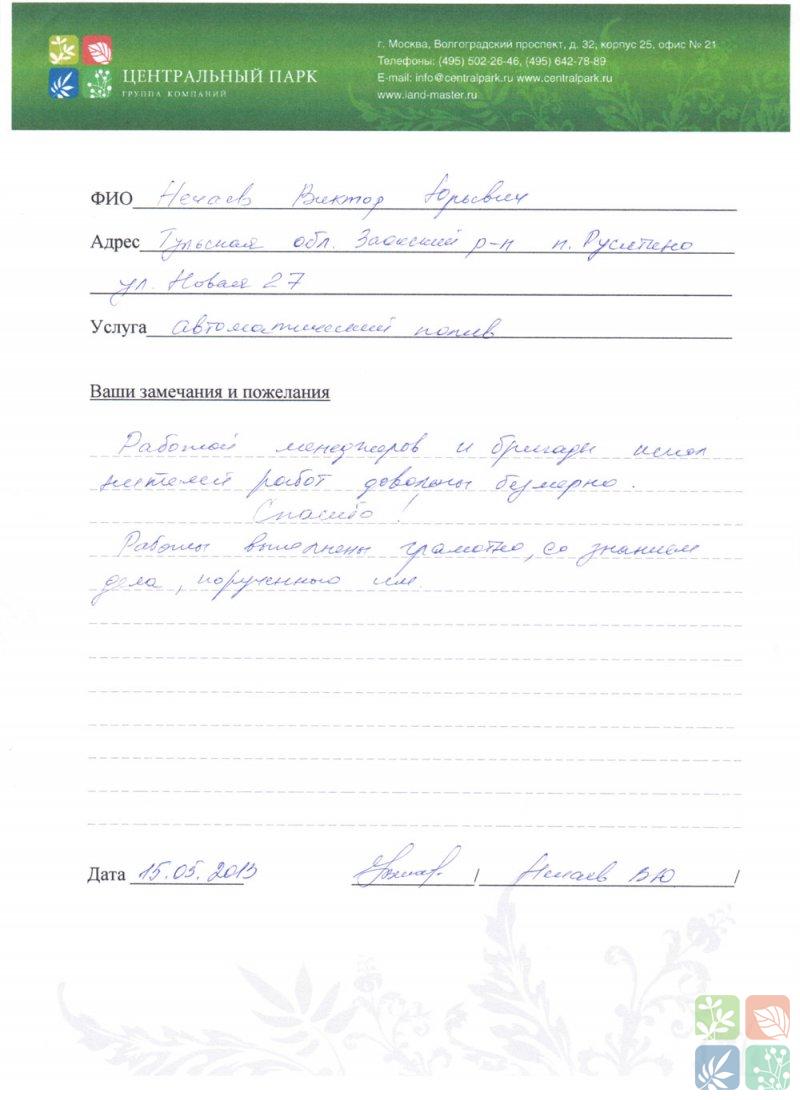 ЦЕНТРАЛЬНЫЙ ПАРК
ГРУППА КОМПАНИЙ
г. Москва, Волгоградский проспект, д. 32, корпус 25, офис № 21
Телефоны: (495) 502-26-46, (495) 642-78-89
E-mail: info@centralpark.ru www.centralpark.ru
www.land-master.ru
ФИО Нечаев Виктор Юрьевич
Адрес Тульская обл. Заокский р-н п. Русятино
ул. Новая 27
Услуга Автоматический полив
Ваши замечания и пожелания
Работой менеджеров и бригады испол
нителей работ довольны безмерно.
Спасибо!
Работы выполнены грамотно, со знанием
дела, порученного им.
Дата 15.05.2013 / Нечаев В Ю /